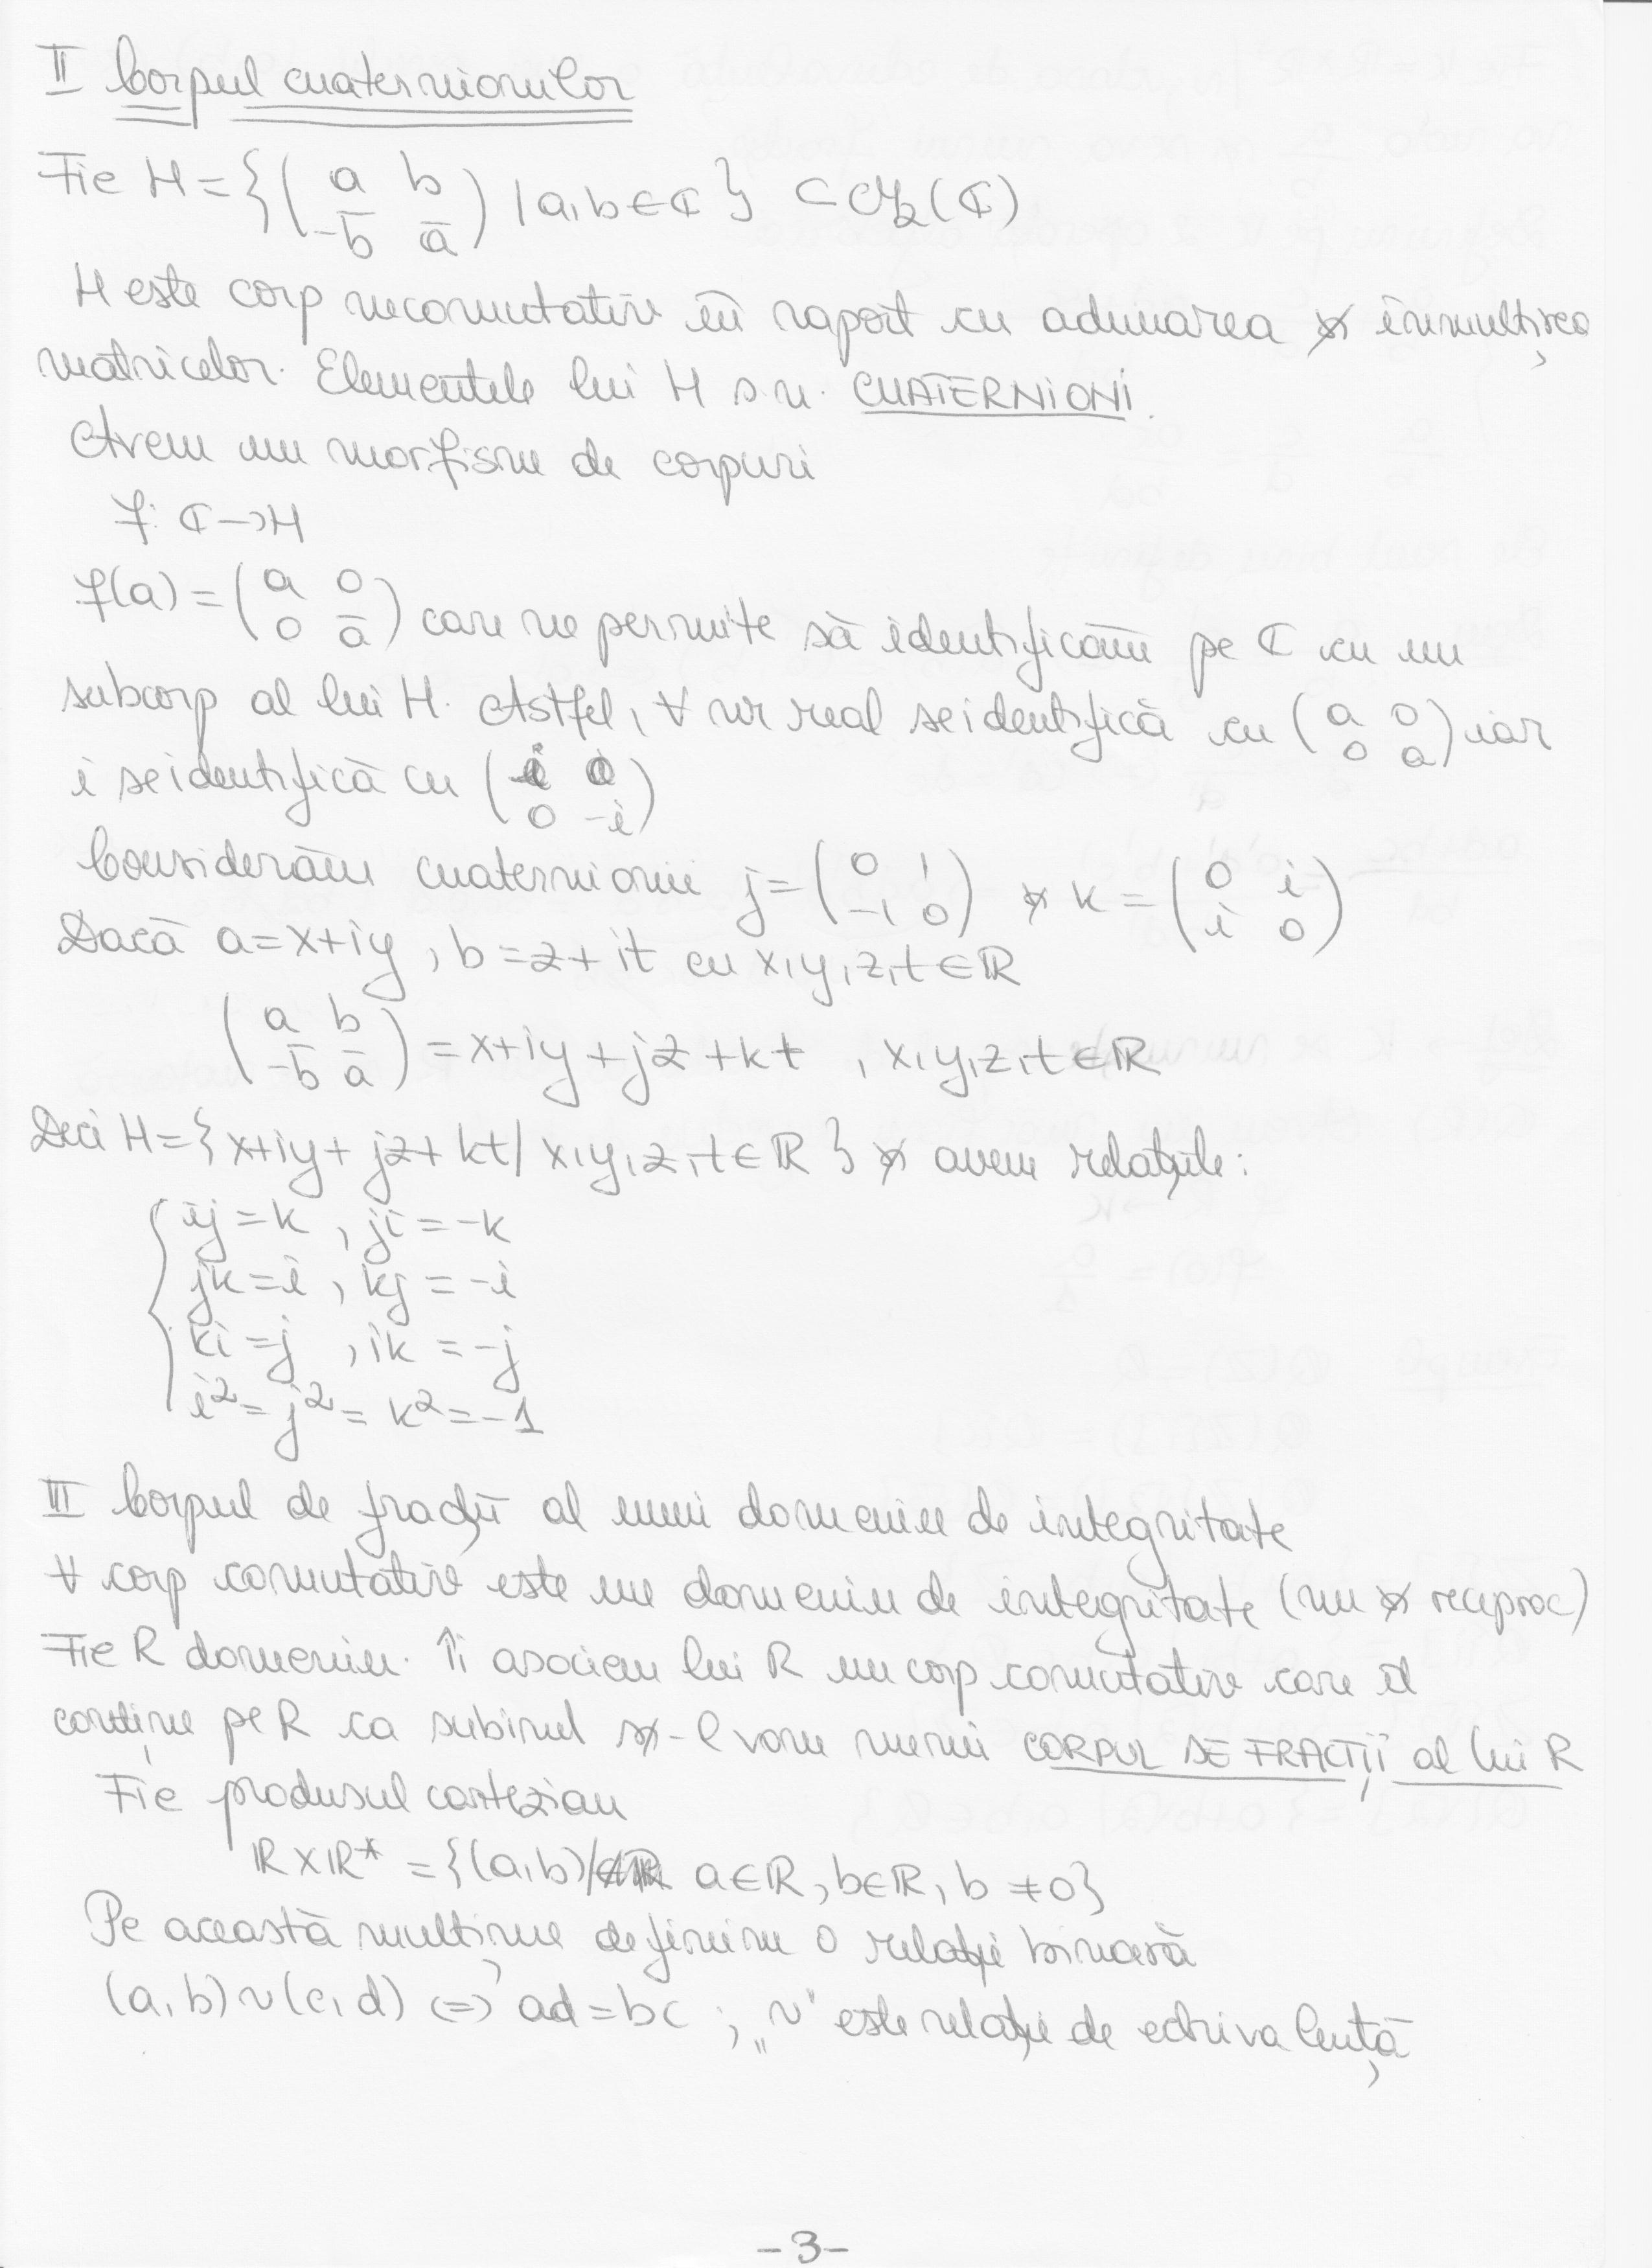 II Corpul cuaternionilor
Fie H = {( a b
-b̄ ā ) | a, b ∈ ℂ } ⊂ M₂(ℂ)
H este corp necomutativ în raport cu adunarea și înmulțirea
matricelor. Elementele lui H s.n. CUATERNIONI.
Avem un morfism de corpuri
f: ℂ → H
f(a) = ( a 0
0 ā ) care ne permite să identificăm pe ℂ cu un
subcorp al lui H. Astfel, ∀ nr real se identifică cu ( a 0
0 a ) iar
i se identifică cu ( i 0
0 -i )
Considerăm cuaternionii j = ( 0 1
-1 0 ) și k = ( 0 i
i 0 )
Dacă a = x+iy, b = z+it cu x, y, z, t ∈ ℝ
( a b
-b̄ ā ) = x+iy+jz+kt , x, y, z, t ∈ ℝ
Deci H = { x+iy+jz+kt | x, y, z, t ∈ ℝ } și avem relațiile:
{ ij = k , ji = -k
jk = i , kj = -i
ki = j , ik = -j
i² = j² = k² = -1
III Corpul de fracții al unui domeniu de integritate
∀ corp comutativ este un domeniu de integritate (nu și reciproc)
Fie R domeniu. Îi asociem lui R un corp comutativ care îl
conține pe R ca subinel și-l vom numi CORPUL DE FRACȚII al lui R
Fie produsul cartezian
ℝ×ℝ* = {(a, b) | a ∈ ℝ, b ∈ ℝ, b ≠ 0}
Pe această mulțime definim o relație binară
(a, b) ~ (c, d) <=> ad = bc ; „~" este relație de echivalență
-3-